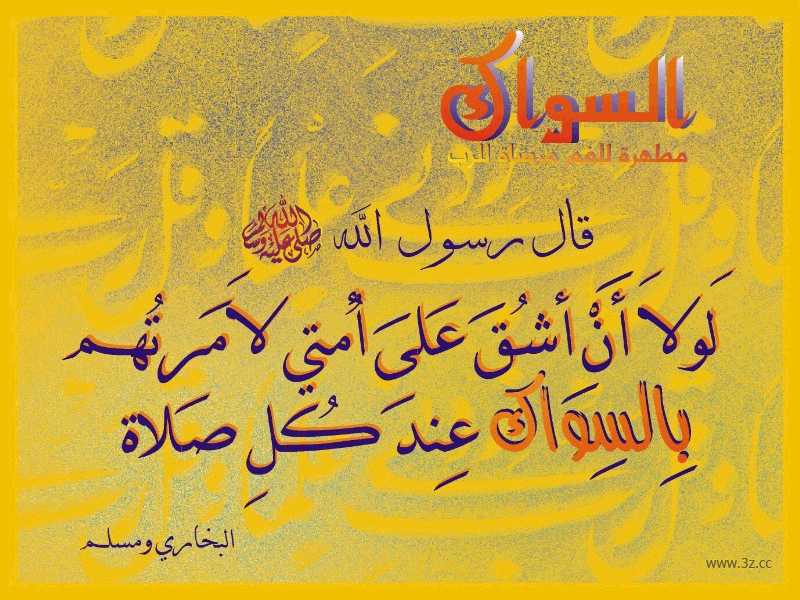 السواك
مطهرة للفم مرضاة للرب
قال رسول الله ﷺ
لَولا أَنْ أشُقَ عَلىَ أُمتي لاَمَرتُهم
بِالسِوَاك عِندَ كُلِ صَلاة
البخاري ومسلم
www.3z.cc